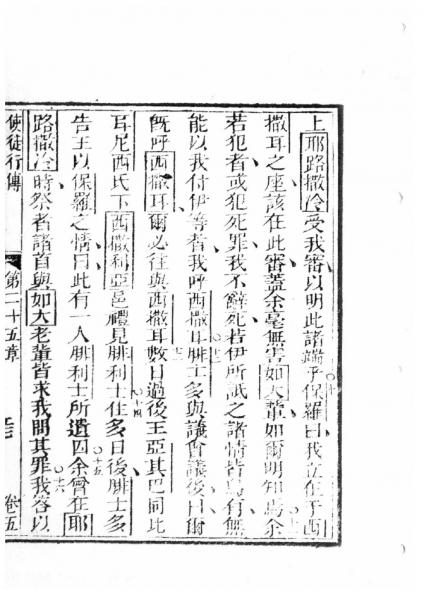 上耶路撒冷受我審以明此諸端乎保羅曰我立在于西
撒耳之座該在此審蓋余毫無害如大輩如爾明知焉余
若犯者或犯死罪我不辭死若伊所訴之諸情皆烏有無
能以我付伊等者我呼西撒耳腓士多與議會議後曰爾
旣呼西撒耳爾必往與西撒耳數日過後王亞其巴同此
耳尼西氏下西撒利亞邑禮見腓利士住多日後腓士多
告王以保羅之情曰此有一人腓利士所遺囚余曾在耶
路撒冷時祭者諸首與如大老輩皆求我問其罪我答以
使徒行傳 第二十五章 卷五